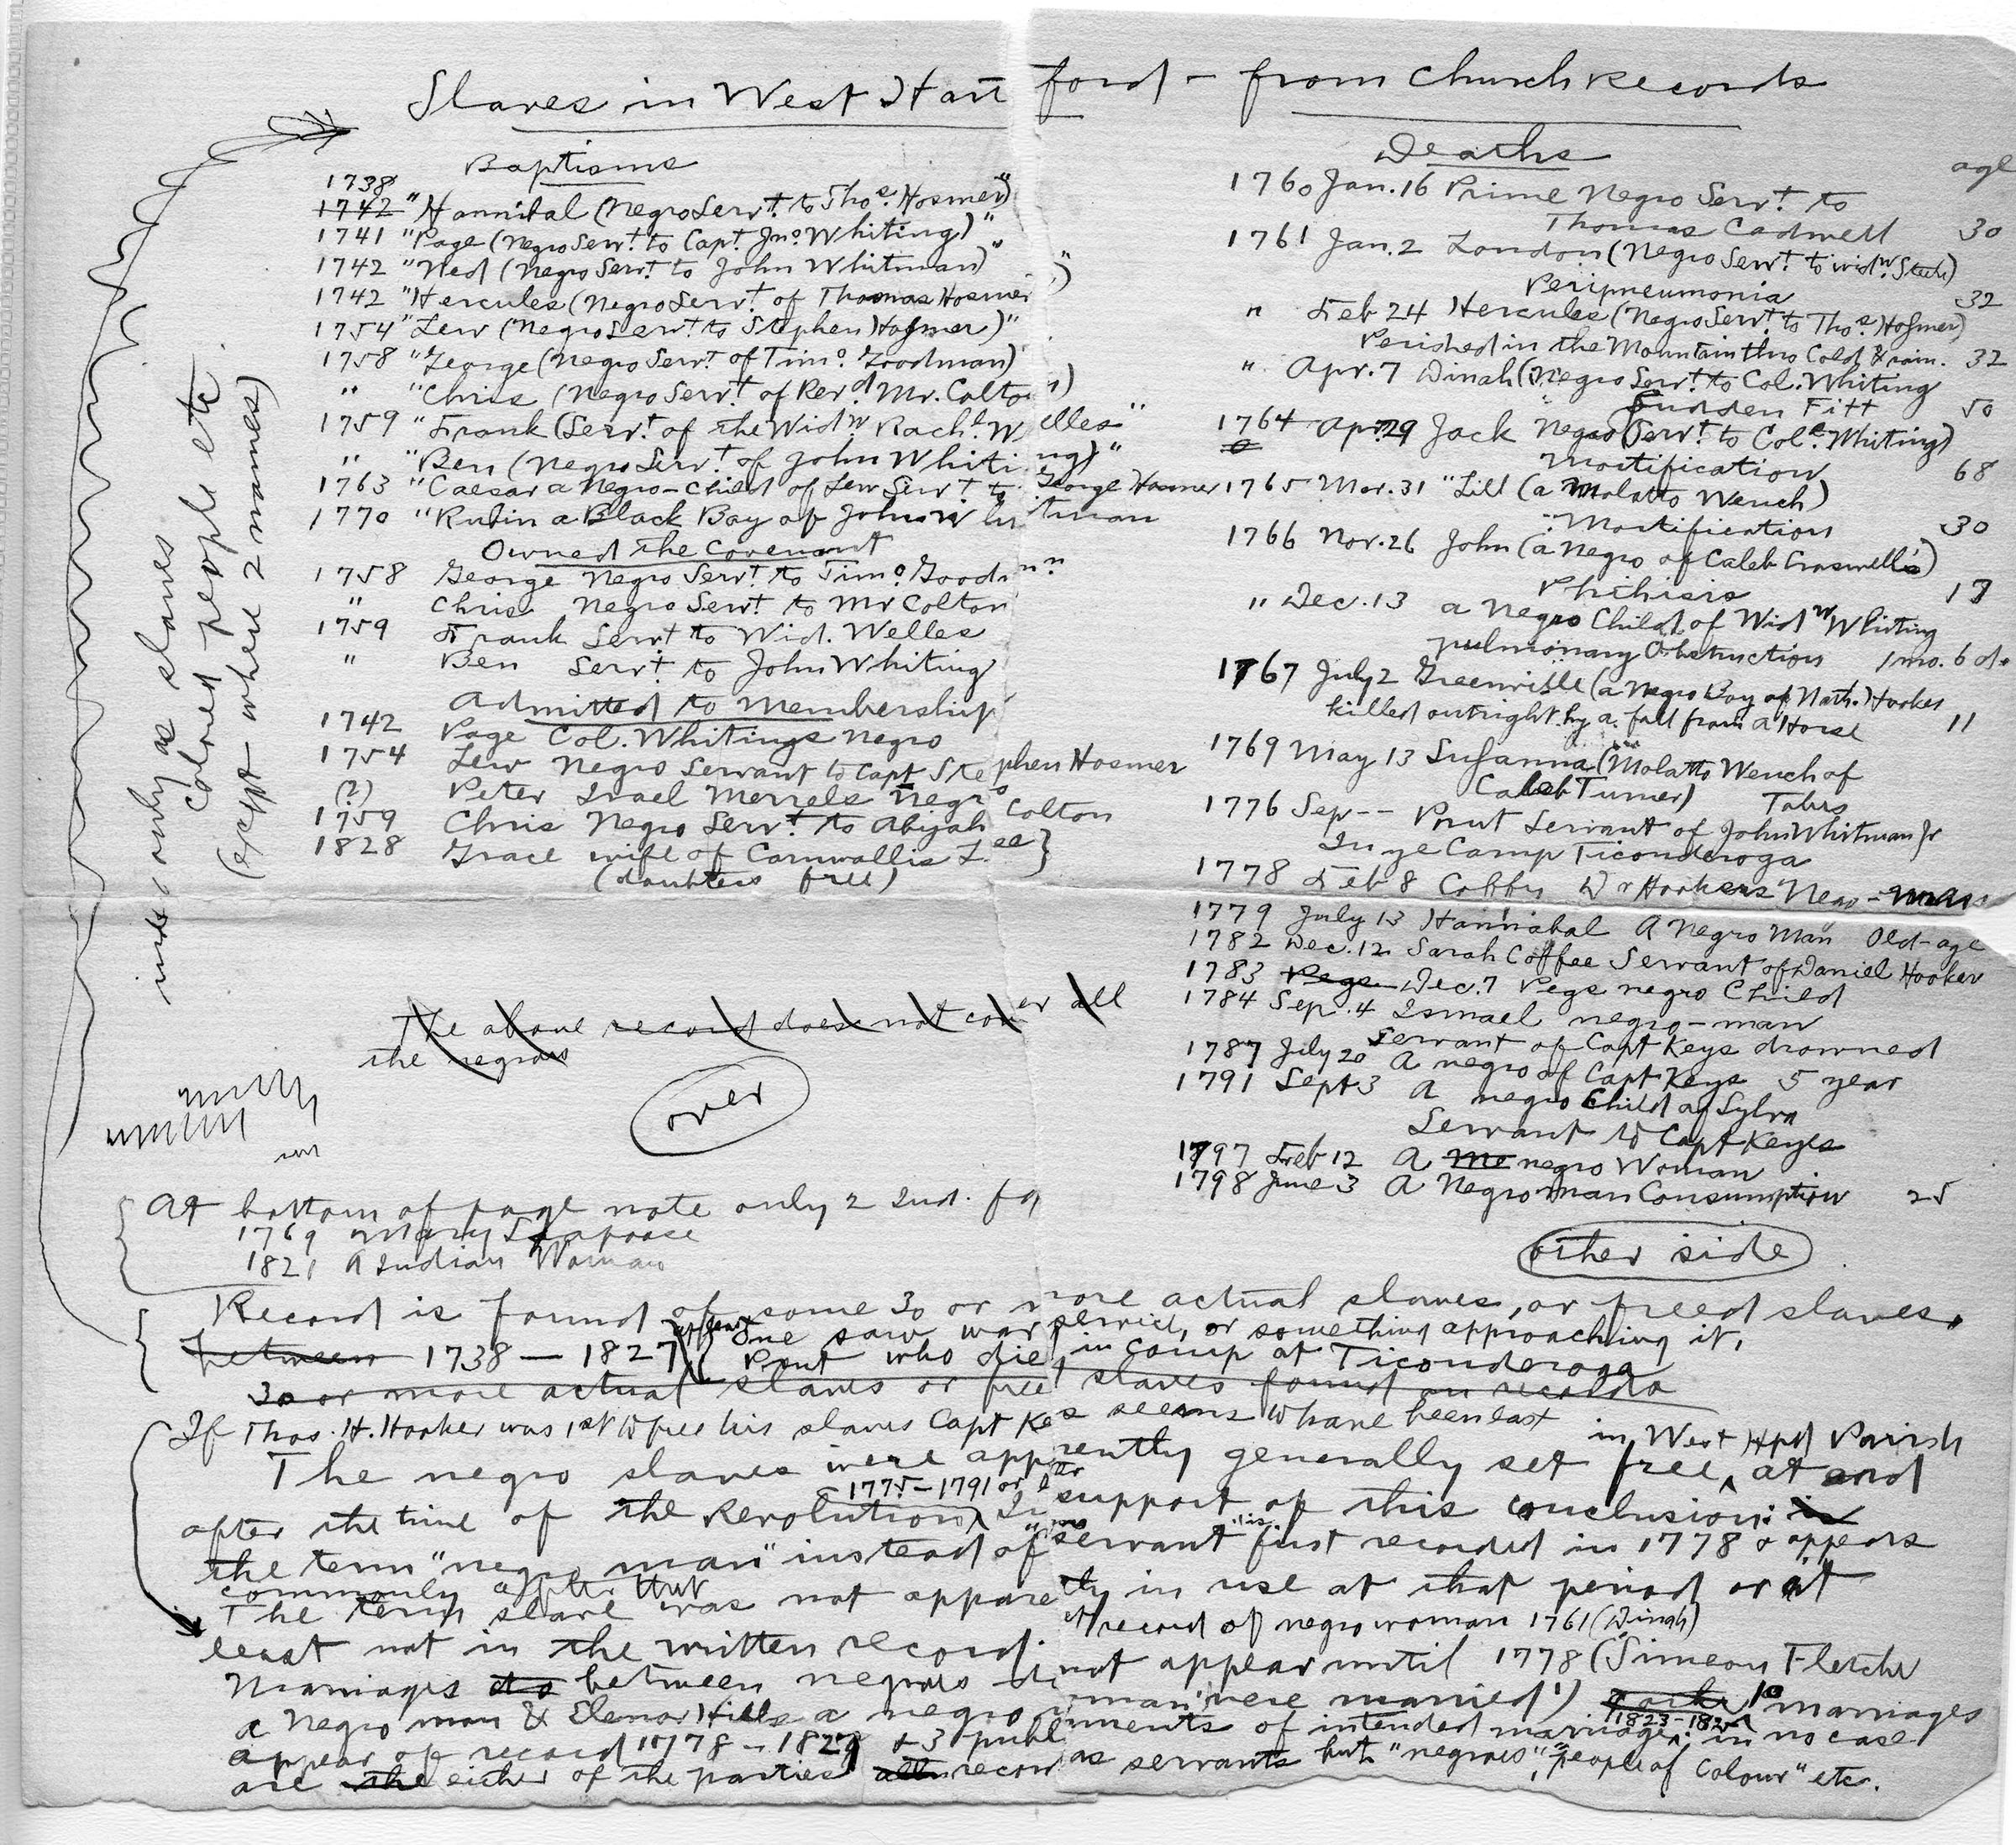 Slaves in West Hartford - from Church Records
Baptisms
1738
1742 "Hannibal (Negro Servt. to Thos. Hosmer)"
1741 "Page (Negro Servt. to Capt. Jno. Whiting)"
1742 "Ned (Negro Servt. to John Whitman)"
1742 "Hercules (Negro Servt. of Thomas Hosmer)"
1754 "Lew (Negro Servt. to Stephen Hosmer)"
1758 "George (Negro Servt. of Timo. Goodman)
" "Chris (Negro Servt. of Revd. Mr. Colton)
1759 "Frank (Servt. of the Widw Rachl. Welles"
" "Ben (Negro Servt. of John Whiting)"
1763 "Caesar a Negro-Child of Lew Servt. to George Hosmer
1770 "Rubin a Black Boy of John Whitman
Owned the Covenant
1758 George Negro Servt. to Timo. Goodmn"
" Chris Negro Servt. to Mr Colton
1759 Frank Servt. to Wid. Welles
" Ben Servt. to John Whiting
Admitted to Membership
1742 Page Col. Whitings Negro
1754 Lew Negro Servant to Capt Stephen Hosmer
(?) Peter Israel Merrels Negro
1759 Chris Negro Servt. to Abijah Colton
1828 Grace wife of Cornwallis Lee }
(doubtless free)
only as slaves
colored people etc
(except where 2 names)
The above record does not cover all
the negroes
over
Deaths
age
1760 Jan. 16 Prime Negro Servt. to
Thomas Cadwell 30
1761 Jan. 2 London (Negro Servt. to widw. Steele)
Peripneumonia 32
" Feb 24 Hercules (Negro Servt. to Thos. Hosmer)
Perished in the Mountain thro Cold & rain. 32
" Apr. 7 Dinah (Negro Servt. to Col. Whiting
Sudden Fitt 50
1764 Apr. 29 Jack Negro (Servt. to Col. Whiting)
Mortification 68
1765 Mar. 31 "Lill (a Molatto Wench)
"Mortification 30
1766 Nov. 26 John (a Negro of Caleb Croswell's)
Phthisis 17
" Dec. 13 a Negro Child of Widw Whiting
pulmonary Obstruction 1 mo. 6 d.
1767 July 2 Greenville (a Negro Boy of Nath. Hooker
killed outright by a fall from a Horse 11
1769 May 13 Susanna (Molatto Wench of
Caleb Turner) Tabes
1776 Sep -- Prut Servant of John Whitman Jr
In ye Camp Ticonderoga
1778 Feb 8 Cobby Dr Hookers Negro-man
1779 July 13 Hannabal A Negro Man Old-age
1782 Dec. 12 Sarah Coffee Servant of Daniel Hooker
1783 Pegs Dec. 7 Pegs negro Child
1784 Sep. 4 Ismael negro-man
Servant of Capt Keys drowned
1787 July 20 A negro of Capt Keys 5 year
1791 Sept 3 A negro Child of Sylva
Servant to Capt Keyes
1797 Feb 12 A negro Woman
1798 June 3 A Negro man Consumption 25
other side
At bottom of page note only 2 Ind.
1769 Mary
1821 A Indian Woman
Record is found of some 30 or more actual slaves, or freed slaves.
between 1738 - 1827 appear One saw war service, or something approaching it,
Prut who died in Camp at Ticonderoga
30 or more actual slaves or freed slaves found on records
If Thos. H. Hooker was 1st to free his slaves Capt Keys seems to have been last
in West Htfd Parish
The negro slaves were apparently generally set free, at and
1775-1791 or later
after the time of the Revolution, In support of this conclusion: is
the term "negro man" instead of "servant" is first recorded in 1778 & appears
commonly after that
The term slave was not apparently in use at that period or at
least not in the written record. 1st record of negro woman 1761 (Dinah)
Marriages between negroes do not appear until 1778 (Simeon Fletcher
a Negro man & Elenor Hills a negro woman "were married") 10 marriages
1823-182
appear of record 1778-1827 & 3 publ uments of intended marriage, in no case
are the either of the parties recor as servants but "negroes", "people of Colour" etc.